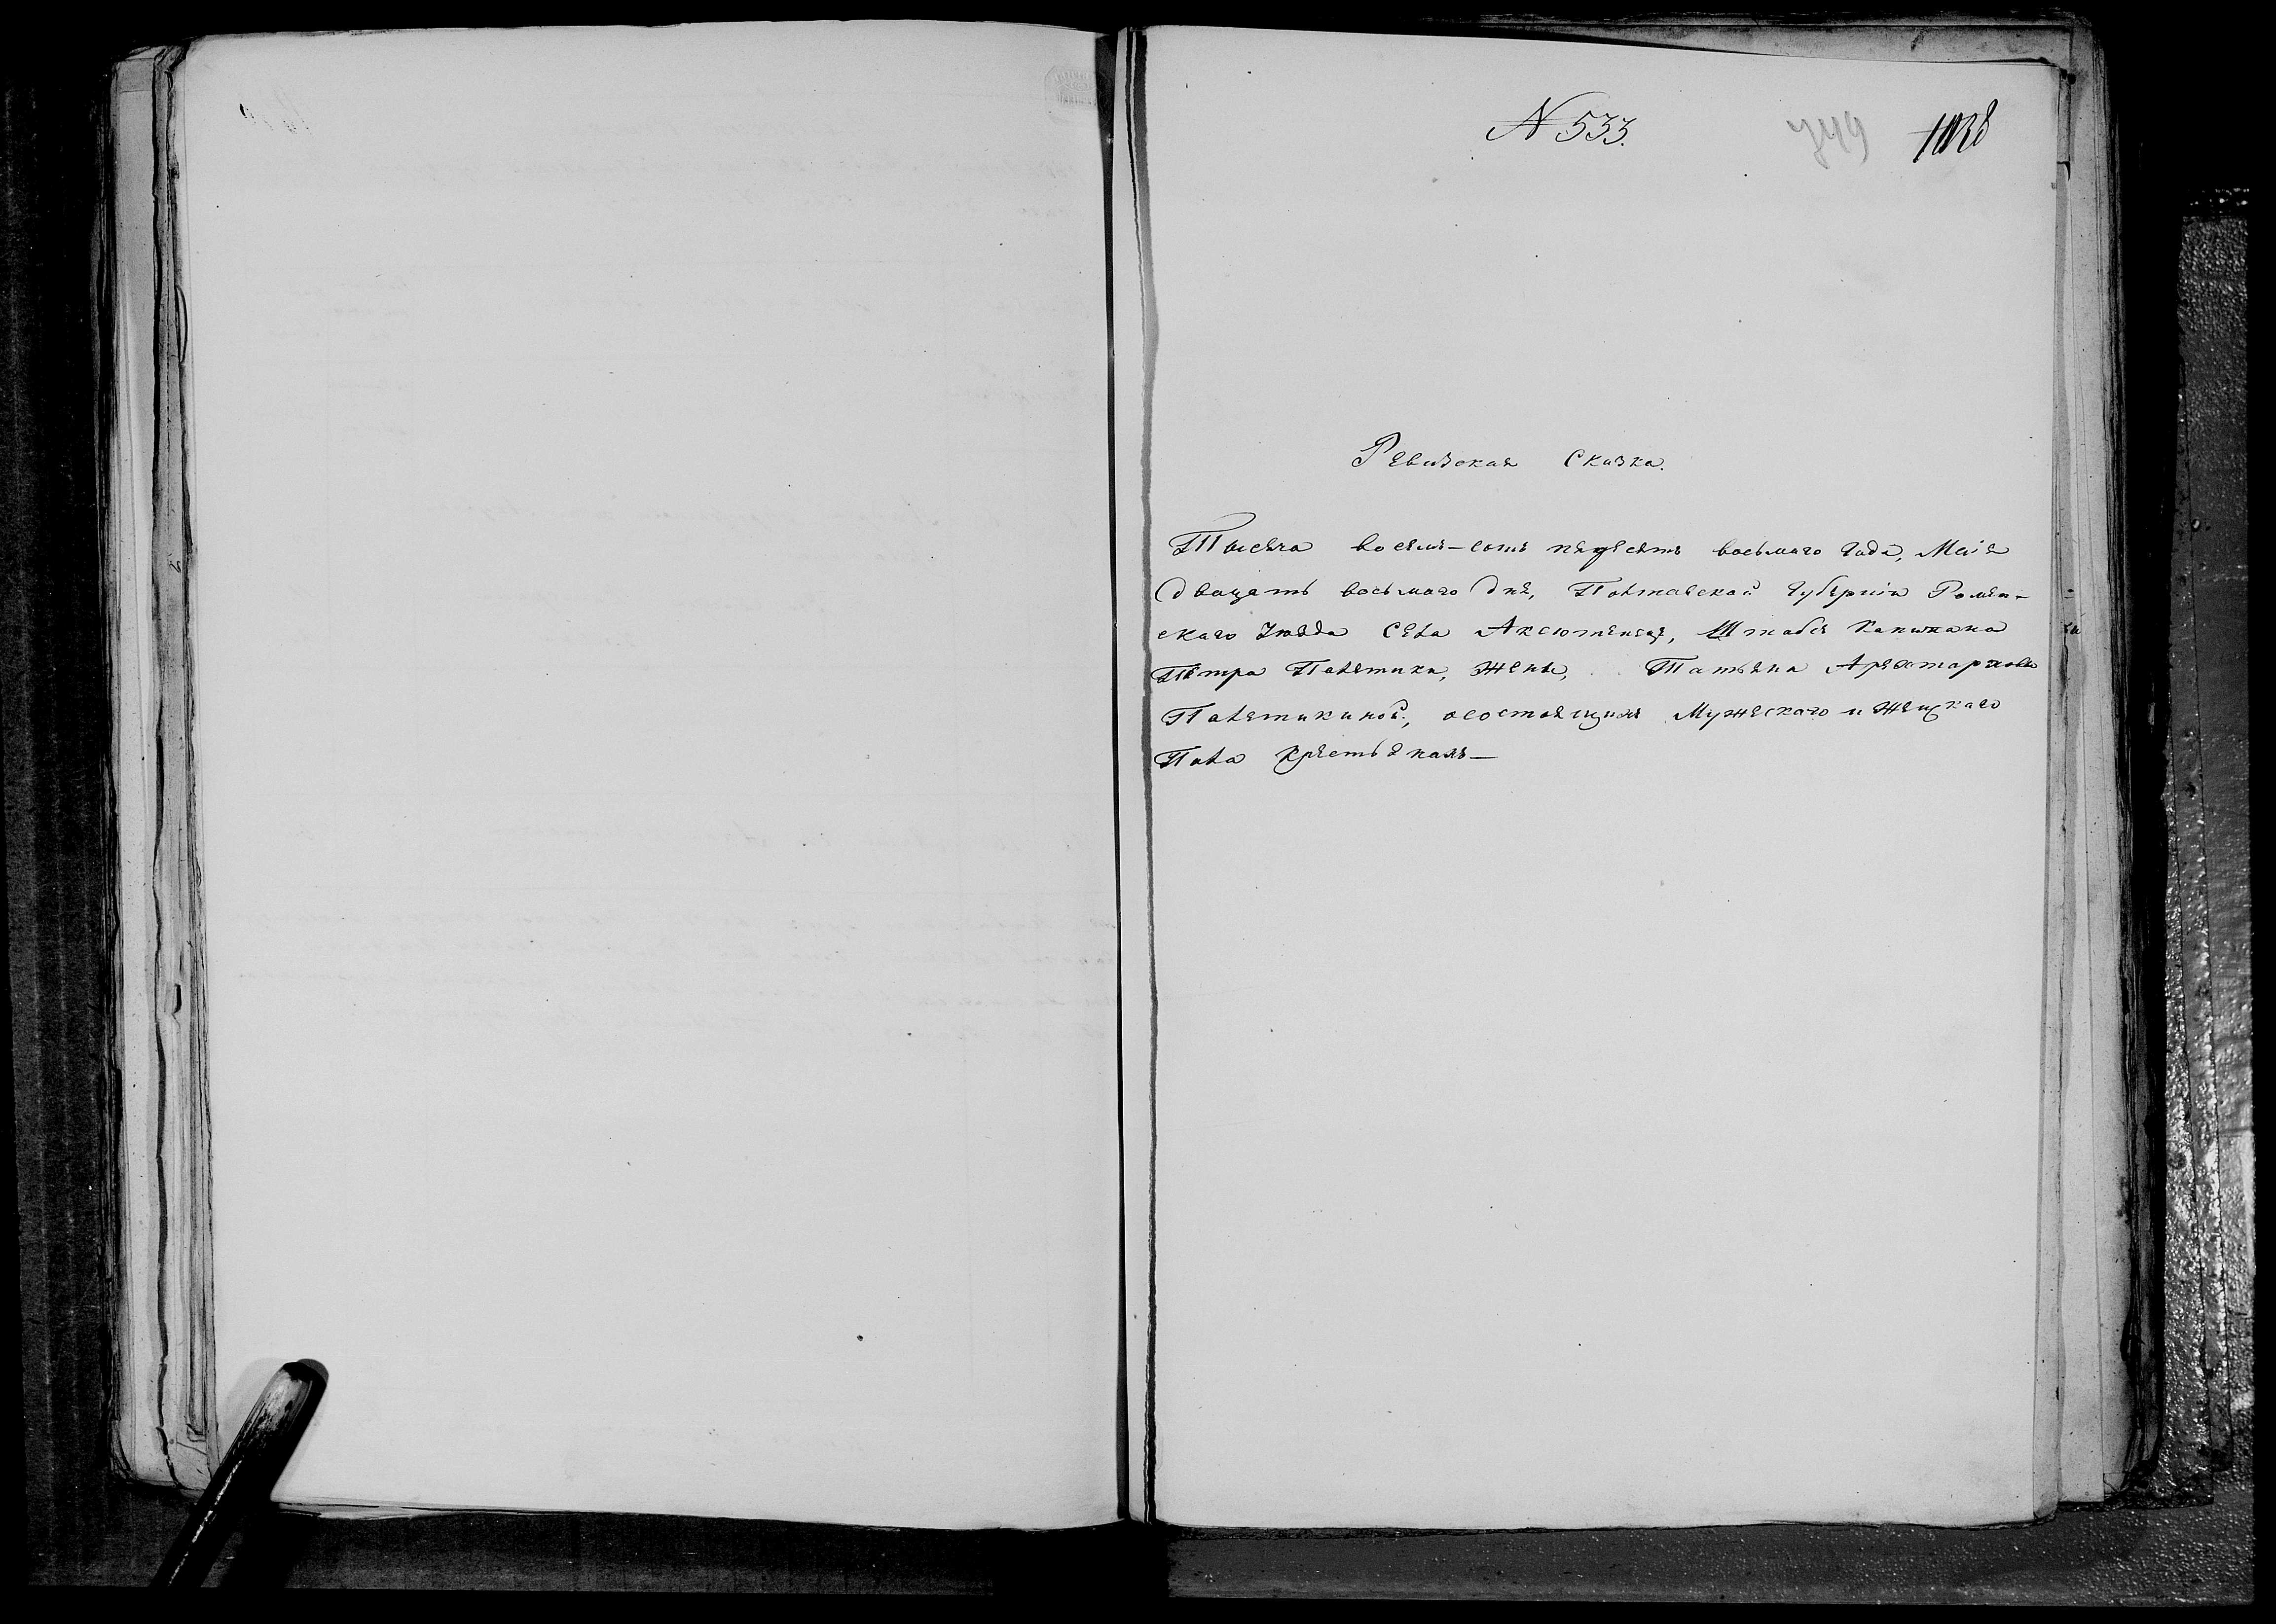 N 533.
749
Ревизская Сказка.
Тысяча восемь-сотъ пядесятъ восьмаго Года, Маія
двацать восьмаго дня, Полтавской Губерніи Ромен-
скаго Уезда Села Аксютенецъ, Штабсъ Капитана
Петра Полетики, Жены, Татьяна Арестархова
Полетикиной, осостоящихъ Мужескаго и Женскаго
Пола Крестьянахъ-